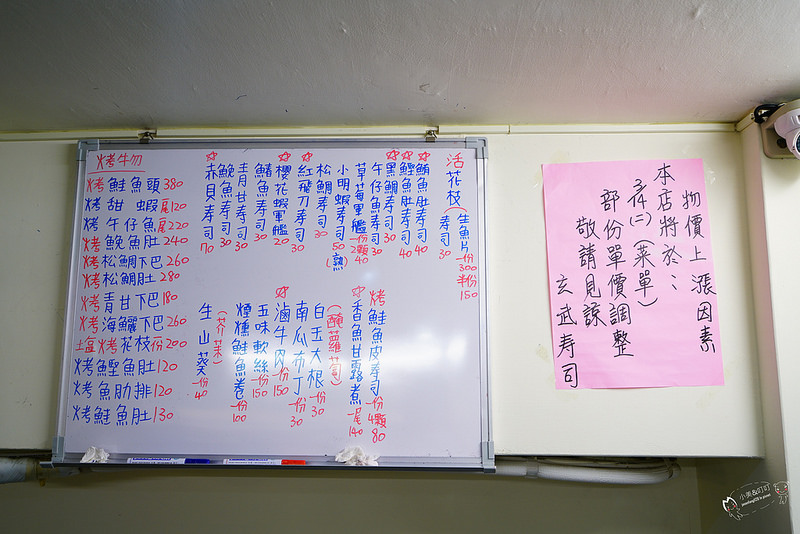 烤物
烤鮭魚頭380
烤甜蝦尾120
烤午仔魚尾220
烤鮸魚肚240
烤松鯛下巴260
烤松鯛肚280
烤青甘下巴180
烤海鱺下巴260
塩烤花枝份200
烤鰹魚肚120
烤魚肋排120
烤鮭魚肚130
活花枝(生魚片一份300半份150
壽司30
☆鮪魚肚寿司40
☆鰹魚肚寿司40
☆黑鯛寿司30
午仔魚寿司30
草莓軍艦一份2顆40
小明蝦寿司50(熟)
松鯛寿司30
☆紅飛刀寿司30
☆櫻花蝦軍艦20
鰆魚寿司30
青甘寿司30
鮸魚寿司30
☆赤貝寿司70
烤鮭魚皮寿司一份4顆80
☆香魚甘露煮一尾140
(醃蘿蔔)
白玉大根一份30
南瓜布丁一份30
☆滷牛肉一份150
五味軟絲一份150
煙燻鮭魚卷一份100
(芥茉)
生山葵一份40
物價上漲因素
本店將於：
3/4(二)(菜單)
部份單價調整
敬請見諒
玄武寿司